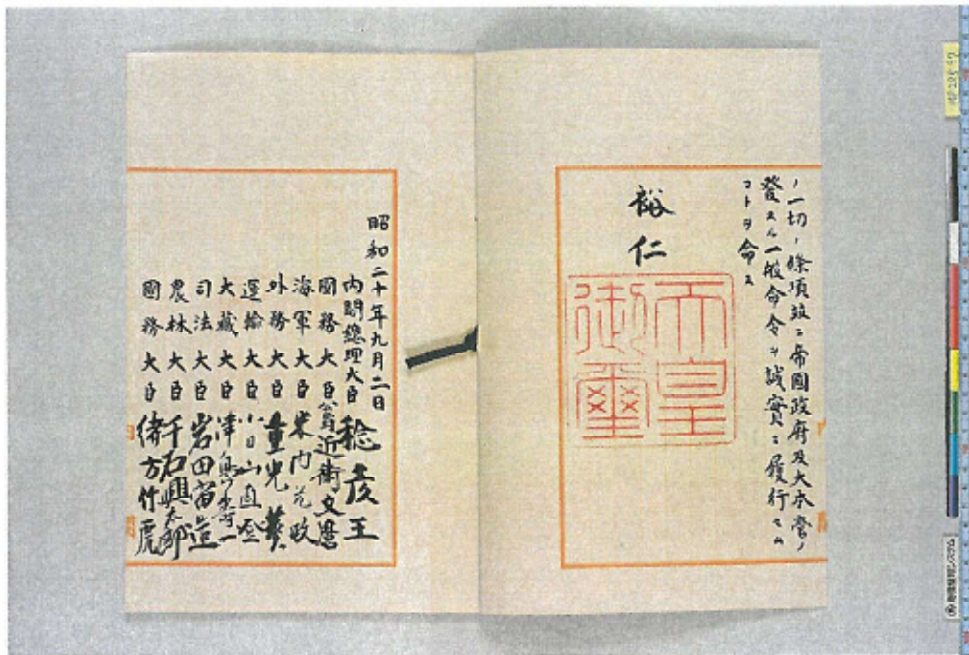 ノ一切ノ條項竝ニ帝國政府及大本營ノ
發スル一般命令ヲ誠實ニ履行セム
コトヲ命ス
裕仁
天皇
御璽
昭和二十年九月二日
内閣總理大臣 稔彦王
國務大臣 公爵 近衛文麿
海軍大臣 米内光政
外務大臣 重光葵
運輸大臣 小日山直登
大藏大臣 津島壽一
司法大臣 岩田宙造
農林大臣 千石興太郎
國務大臣 緒方竹虎